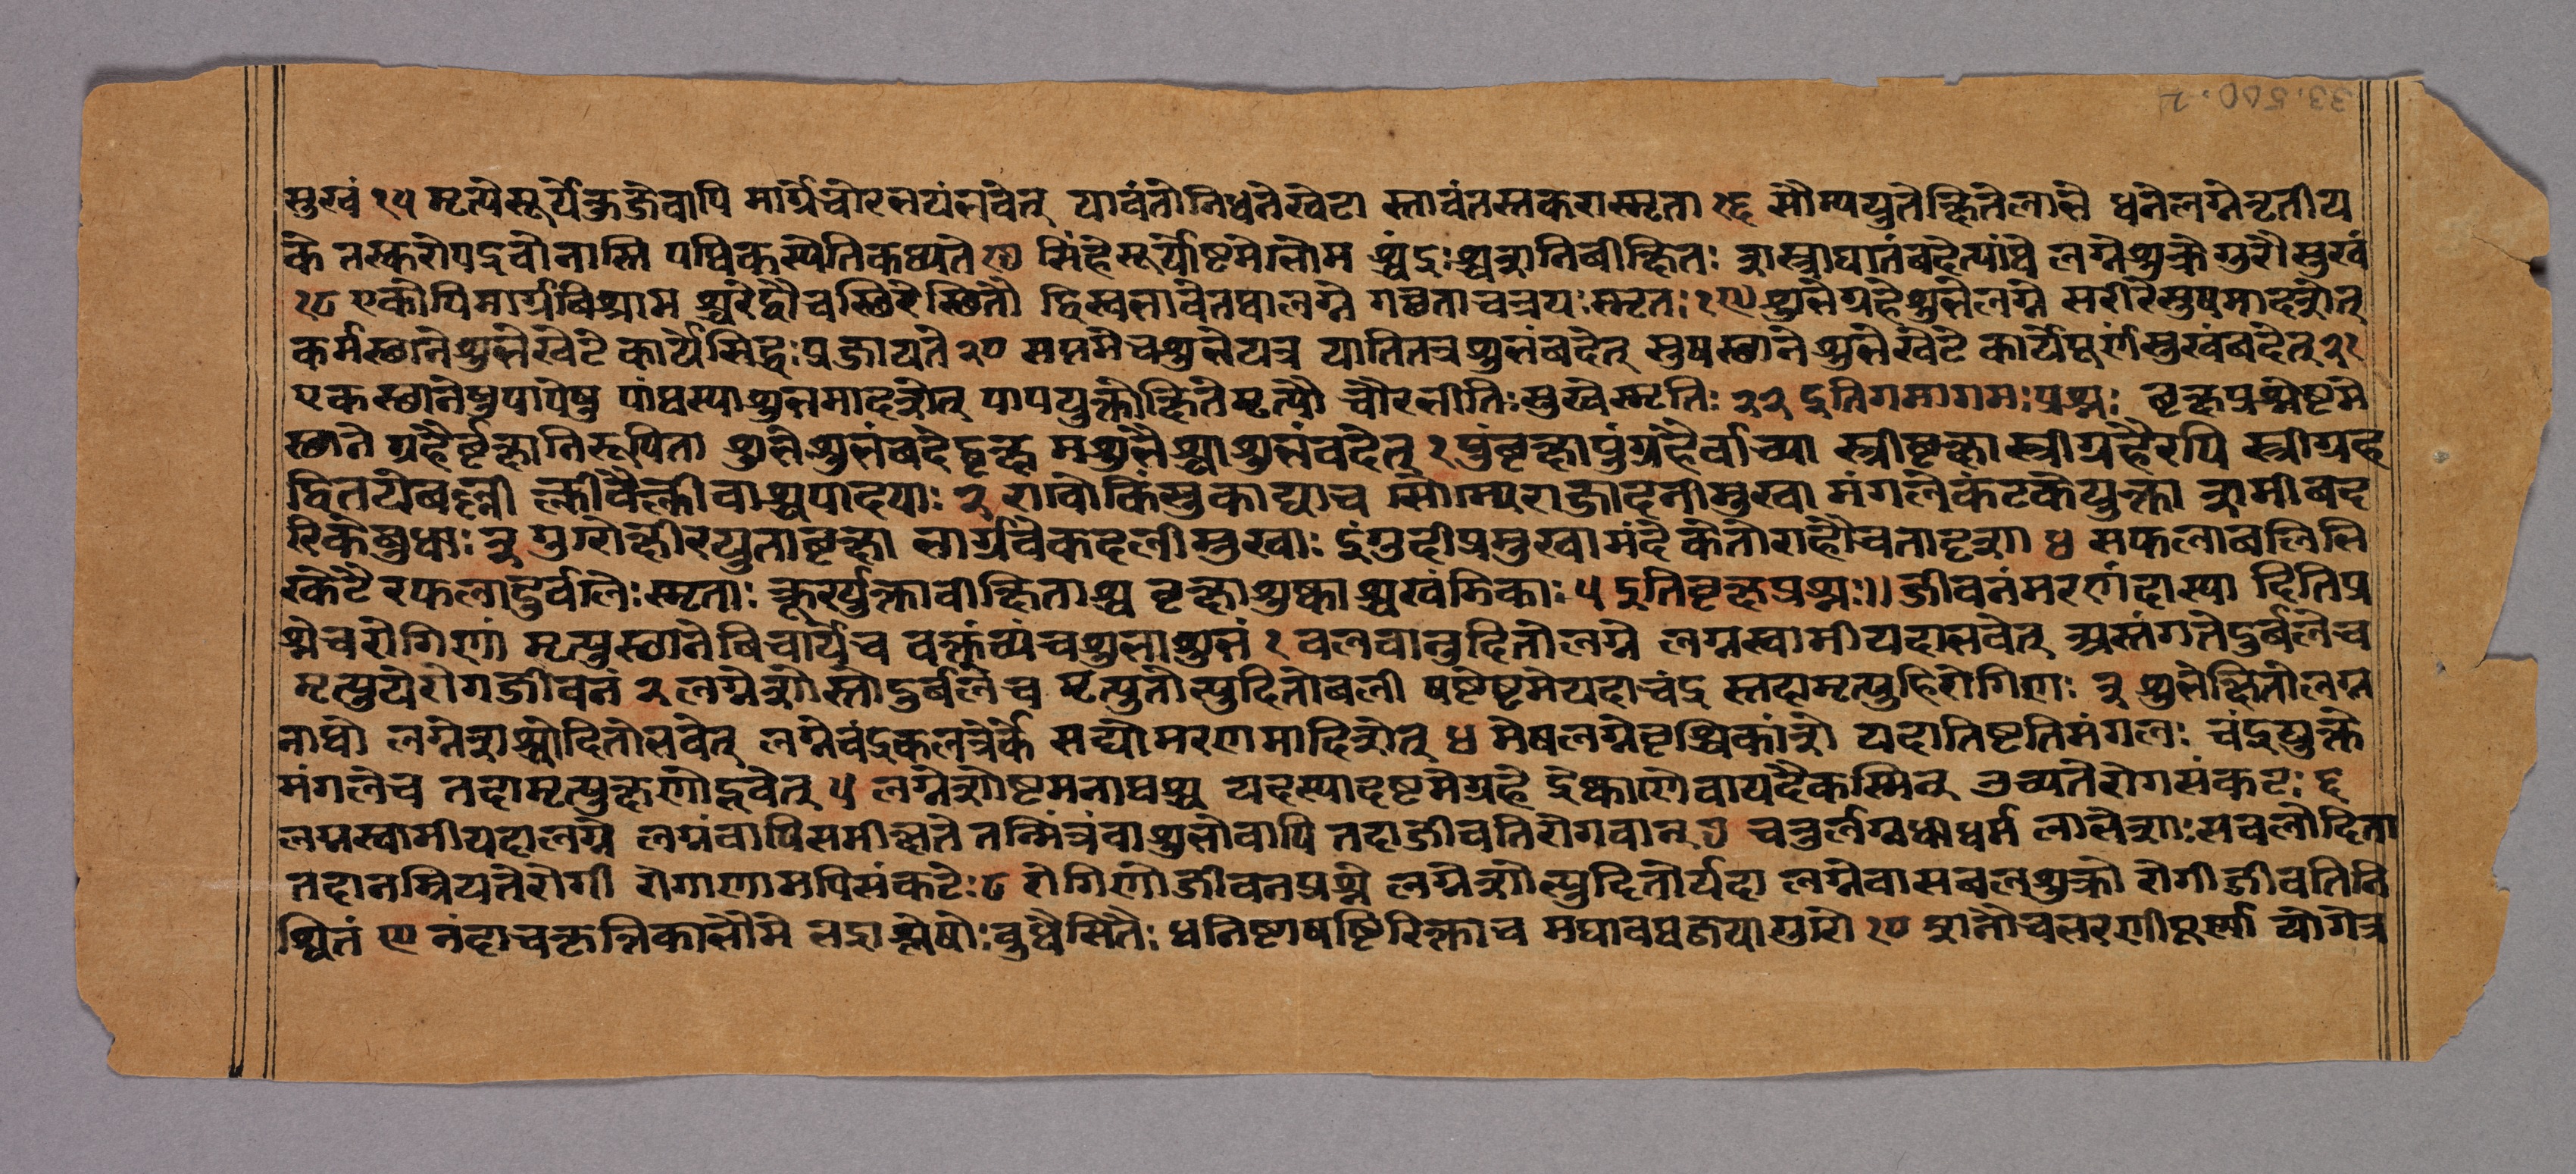 सुखं १५ मृत्ये सूर्ये कुजे वापि मार्गे चोरभयं भवेत् यावंतो निधने खेटा स्तावंतस्तस्करा स्मृता १६ सौम्ययुतेक्षिते लाभे धने लग्ने तृतीय
के तस्करोपद्रवो नास्ति पथिकस्येति कथ्यते १७ सिंहे सूर्योष्टमे भौम श्चंद्रः शनिवीक्षितः शस्त्राघातं वदेत्पांथे लग्ने शुक्रे गुरौ सुखं
१८ एकोपि मार्ग्रविश्राम श्चरे द्वौ च स्थिरे स्थितौ द्विस्वभावे तथा लग्ने गछता च त्रयः स्मृत १९ शुभे ग्रहे शुभे लग्ने सरीरे सुषमादशेत्
कर्मस्थाने शुभे खेटे कार्यसिद्धः प्रजायते २० सप्तमे च शुभे यत्र याति तत्र शुभं वदेत् सुषस्थाने शुभे खेटे कार्ये पूर्णं सुखं वदेत् २१
एकस्थानेषु पापेषु पांथस्याशुभमादशेत् पापयुक्तेक्षिते मृत्यौ चौरभीतिः सुखे स्मृतिः २२ इति गमागमः प्रश्नः वृक्षप्रश्नेष्टमे
स्थाने ग्रहैर्वृक्षा निरूपिता शुभे शुभं वदेद्वृक्ष मशुभैश्चाशुभं वदेत् १ पुंवृक्षा पुंग्रहैर्वाच्या स्त्रीवृक्षा स्त्रीग्रहैरपि स्त्रीग्रह
द्वितये वल्ली क्लीवै क्लीवाश्च पादपाः २ रावो किंसुकाद्याच सोम्य राजादनीमुखा मंगले कंटकैयुक्ता शमी वद
रिकेषुधाः ३ गुरो क्षीरयुता वृक्षा भार्गवे कदलीमुखाः इंगुदीप्रमुखा मंदे केतो राहौ च तादृशा ४ सफला बलिभि
खेटै रफला दुर्वलैः स्मृताः क्रूरर्युक्ता वीक्षिताश्च वृक्षा शुष्काश्च खंडिकाः ५ इति वृक्षप्रश्नः॥ जीवनं मरणं दास्या दिति प्र
श्ने च रोगिणां मृत्युस्थाने विचार्ये च वक्तव्यं च शुभाशुभं १ वलवानुदितो लग्ने लग्नस्वामी यदा भवेत् अस्तंगते दुर्बले च
मृत्युये रोगजीवनं २ लग्नेशोस्तो दुर्बले च मृत्युतोत्युदितो बली षष्टेष्टमे यदा चंद्र स्तदा मृत्युहि रोगिणः ३ शुभेक्षितो लग्न
नाथो लग्नेशश्चोदितो भवेत् लग्ने चंद्रकलत्रेर्के सद्यो मरणमादिशेत् ४ मेषलग्ने वृश्चिकांशे यदा तिष्टति मंगलः चंद्रयुक्ते
मंगले च तदा मृत्युक्षणोद्भवेत् ५ लग्नेशोष्टमनाथश्च यदस्यादष्टमे ग्रहे द्रेष्काणे वा यदैकस्मिन् उच्यते रोगसंकटः ६
लग्नस्वामी यदा लग्ने लग्नं वापि समीक्षते तन्मित्रं वा शुभो वापि तदा जीवति रोगवान् ७ चतुर्लग्नधाधर्म लाभेशाः सवलोदिता
तदा न म्रियते रोगी रोगाणामपि संकटेः ८ रोगिणो जीवनप्रश्ने लग्नेशोत्युदितोर्यदा लग्ने वा सबल शुक्रो रोगी जीवति नि
श्चितं ९ नंदा च कृत्तिका भौमे भद्राश्लेषोः बुधै सितैः धनिष्टा षष्टिरिक्ता च मघा वथ जया गुरो १० शनौ च भरणी पूर्णा योगे त्र
33.500.2